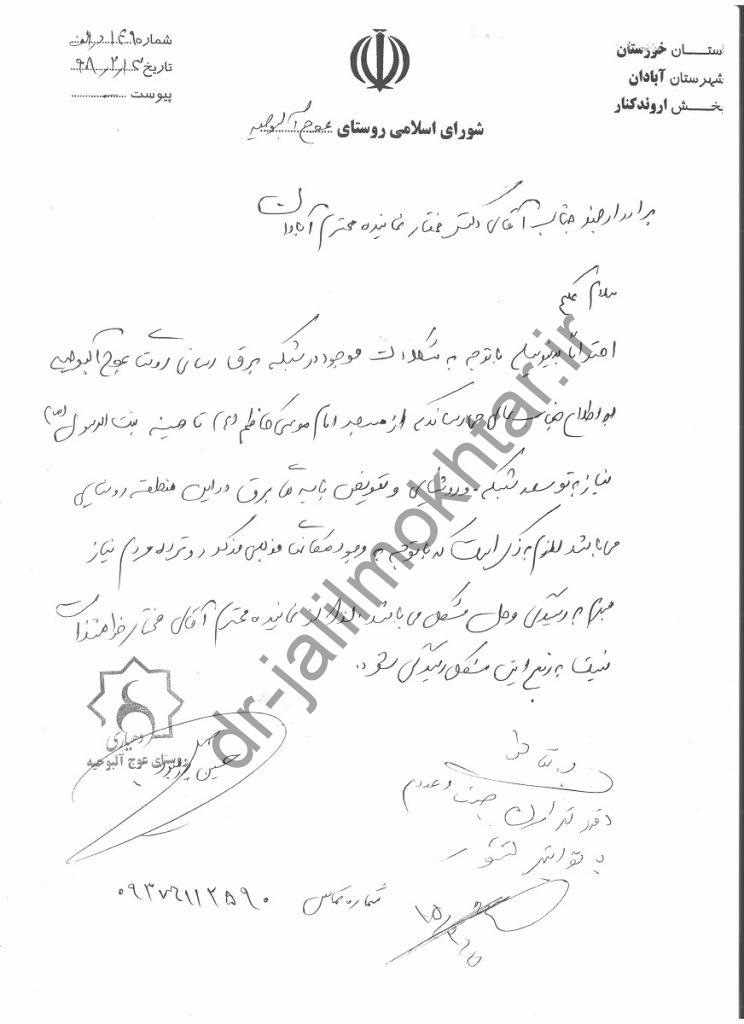 استان خوزستان
شهرستان آبادان
بخش اروندکنار
شماره ۱۶۹ د الف
تاریخ ۹۸/۲/۲
پیوست
شورای اسلامی روستای عوج آلبوحیه
برادر ارجمند جناب آقای دکتر مختار نماینده محترم آبادان
سلام علیکم
احتراماً بدینوسیله باتوجه به مشکلات موجود در شبکه برق رسانی روستای عوج آلبوحیه
به اطلاع جنابعالی می رساند که از مسجد امام موسی کاظم (ع) تا حسینه بنت الرسول (س)
نیاز به توسعه شبکه و روشنایی و تعویض پایه ها برق در این منطقه روستایی
می باشد لازم به ذکر است که باتوجه به وجود مذکور و تردد مردم نیاز
مبرم به رسیدگی و حل مشکل می باشد لذا از نماینده محترم آقای مختار خواهشمند است
نسبت به رفع این مشکل رسیدگی شود.
دهیاری
روستای عوج آلبوحیه
حسین
دفتر
شماره تماس ۰۹۳۷۶۱۱۲۵۹۰
dr-jalilmokhtar.ir